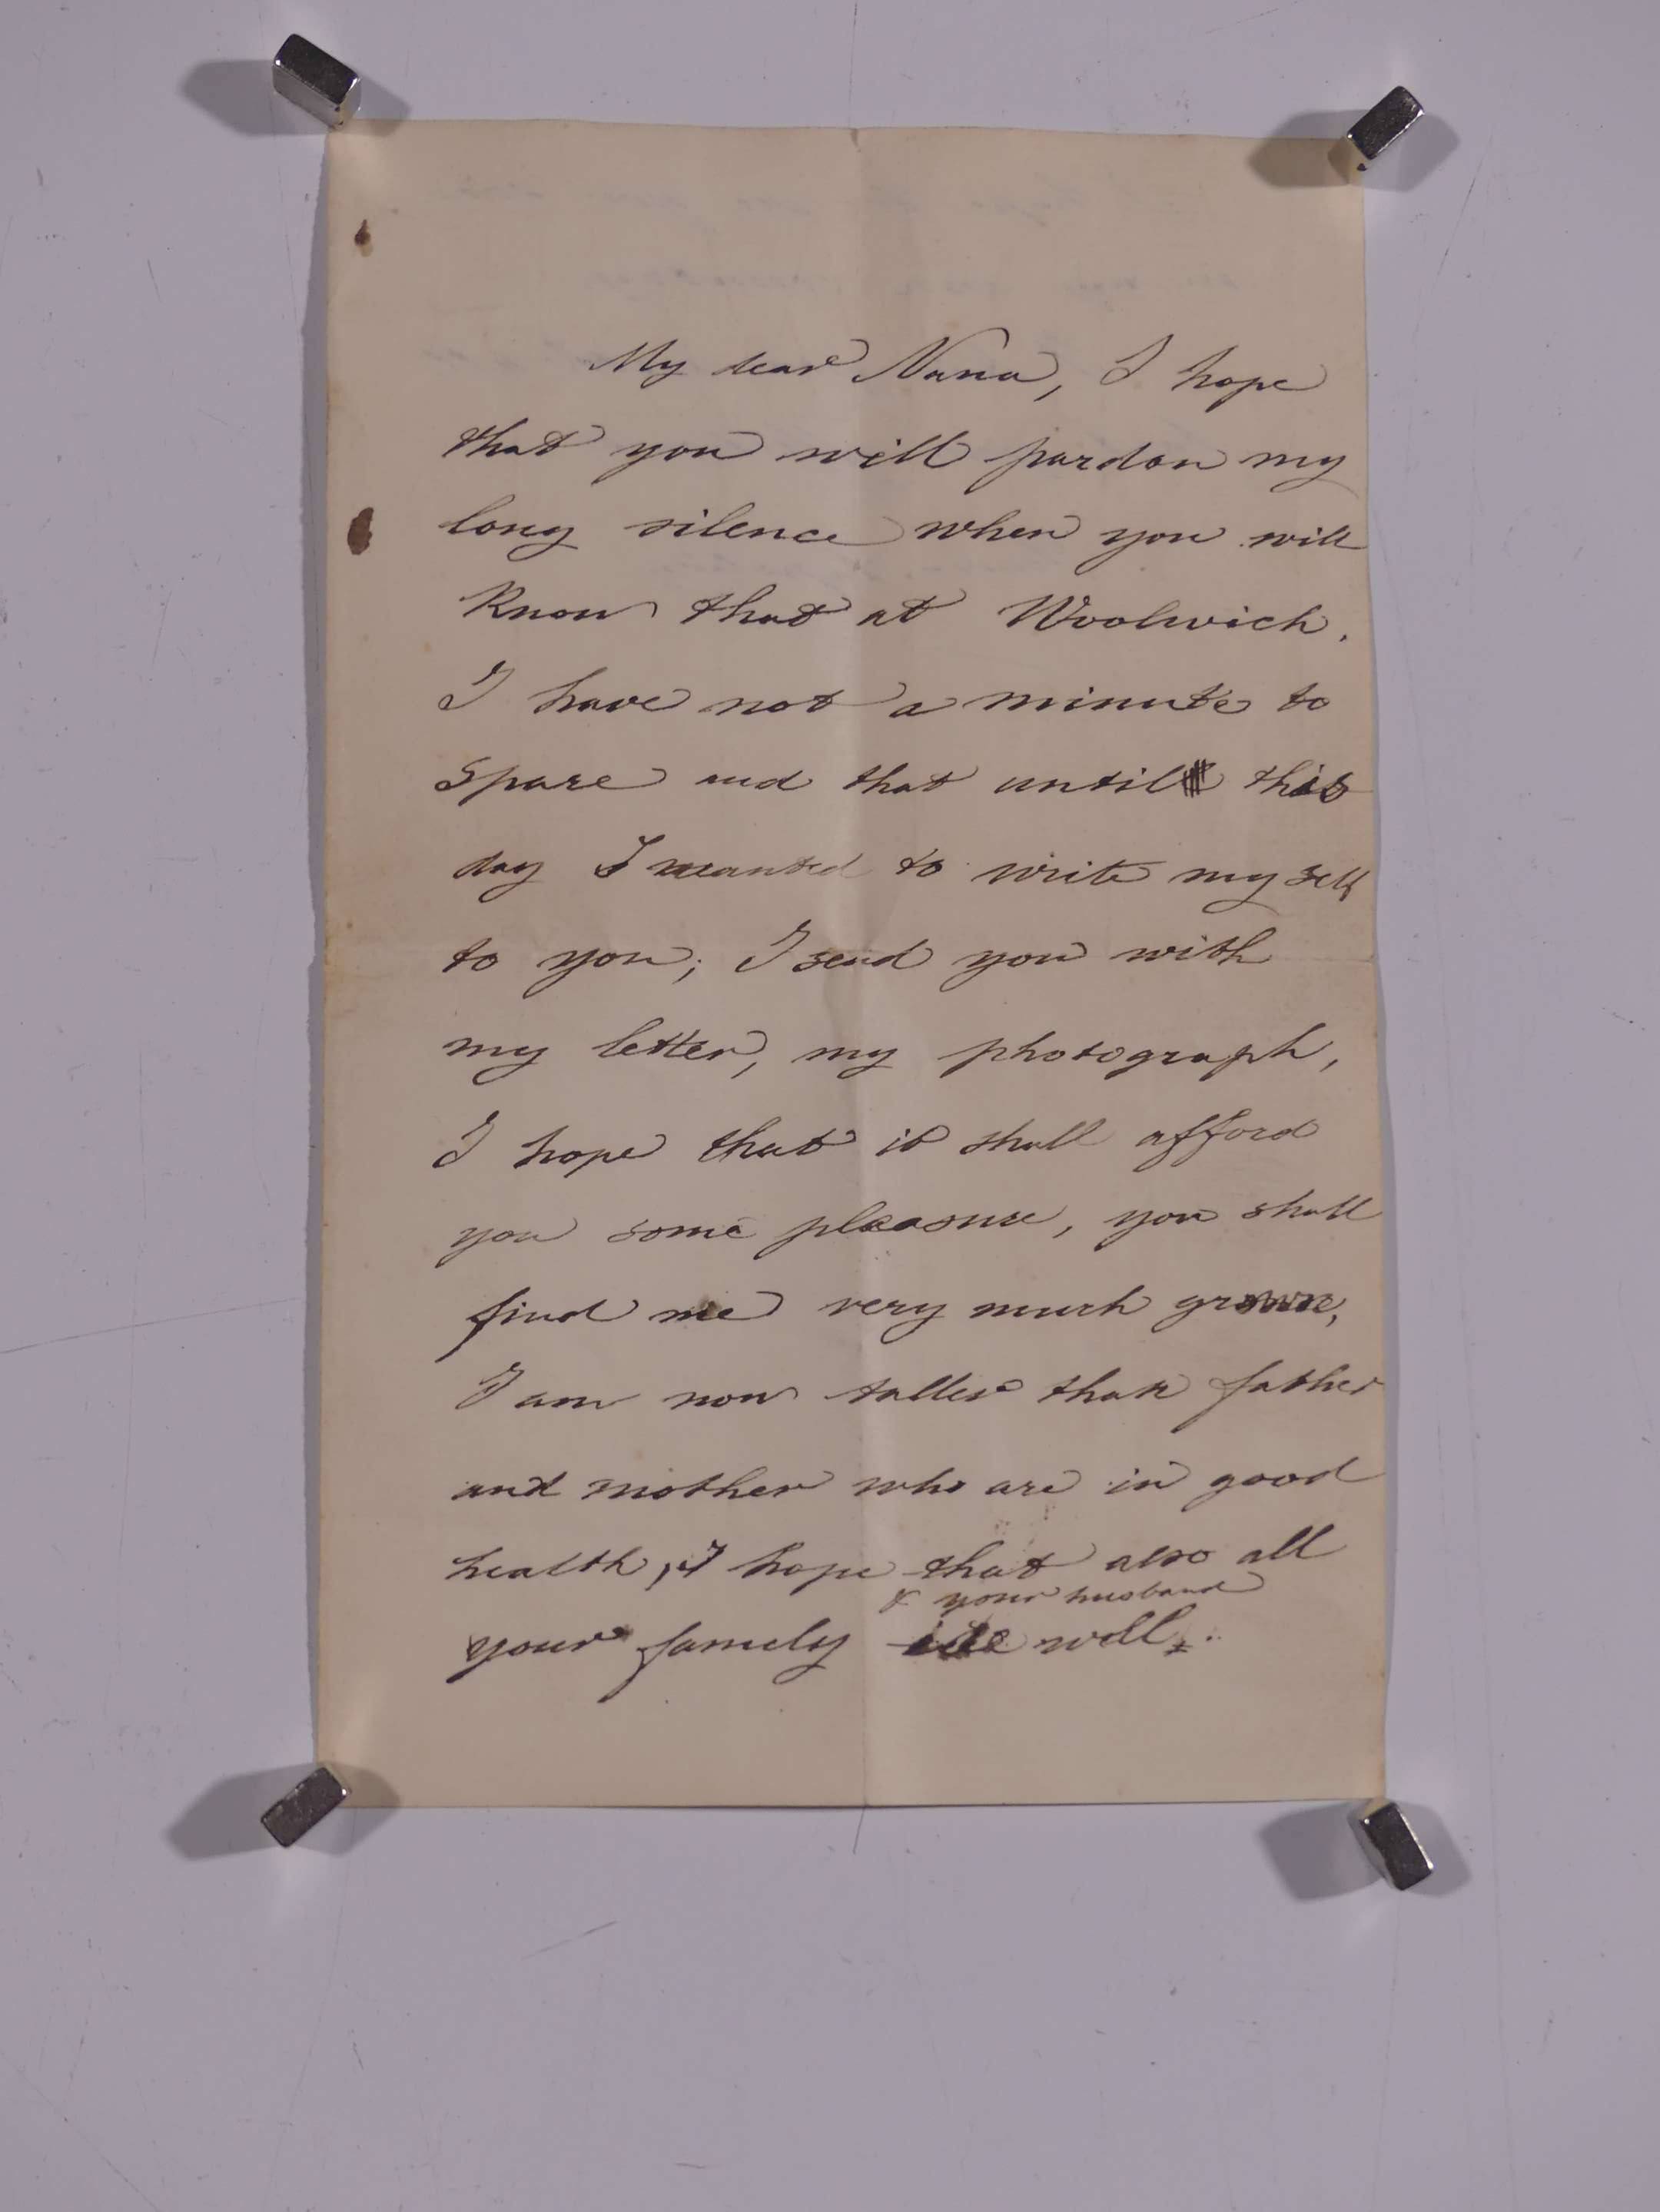 My dear Nana, I hope
that you will pardon my
long silence when you will
Know that at Woolwich,
I have not a minute to
spare and that until this
day I wanted to write my self
to you; I send you with
my letter, my photograph,
I hope that it shall afford
you some pleasure, you shall
find me very much grown,
I am now taller than father
and mother who are in good
health, I hope that also all
& your husband
your family well.